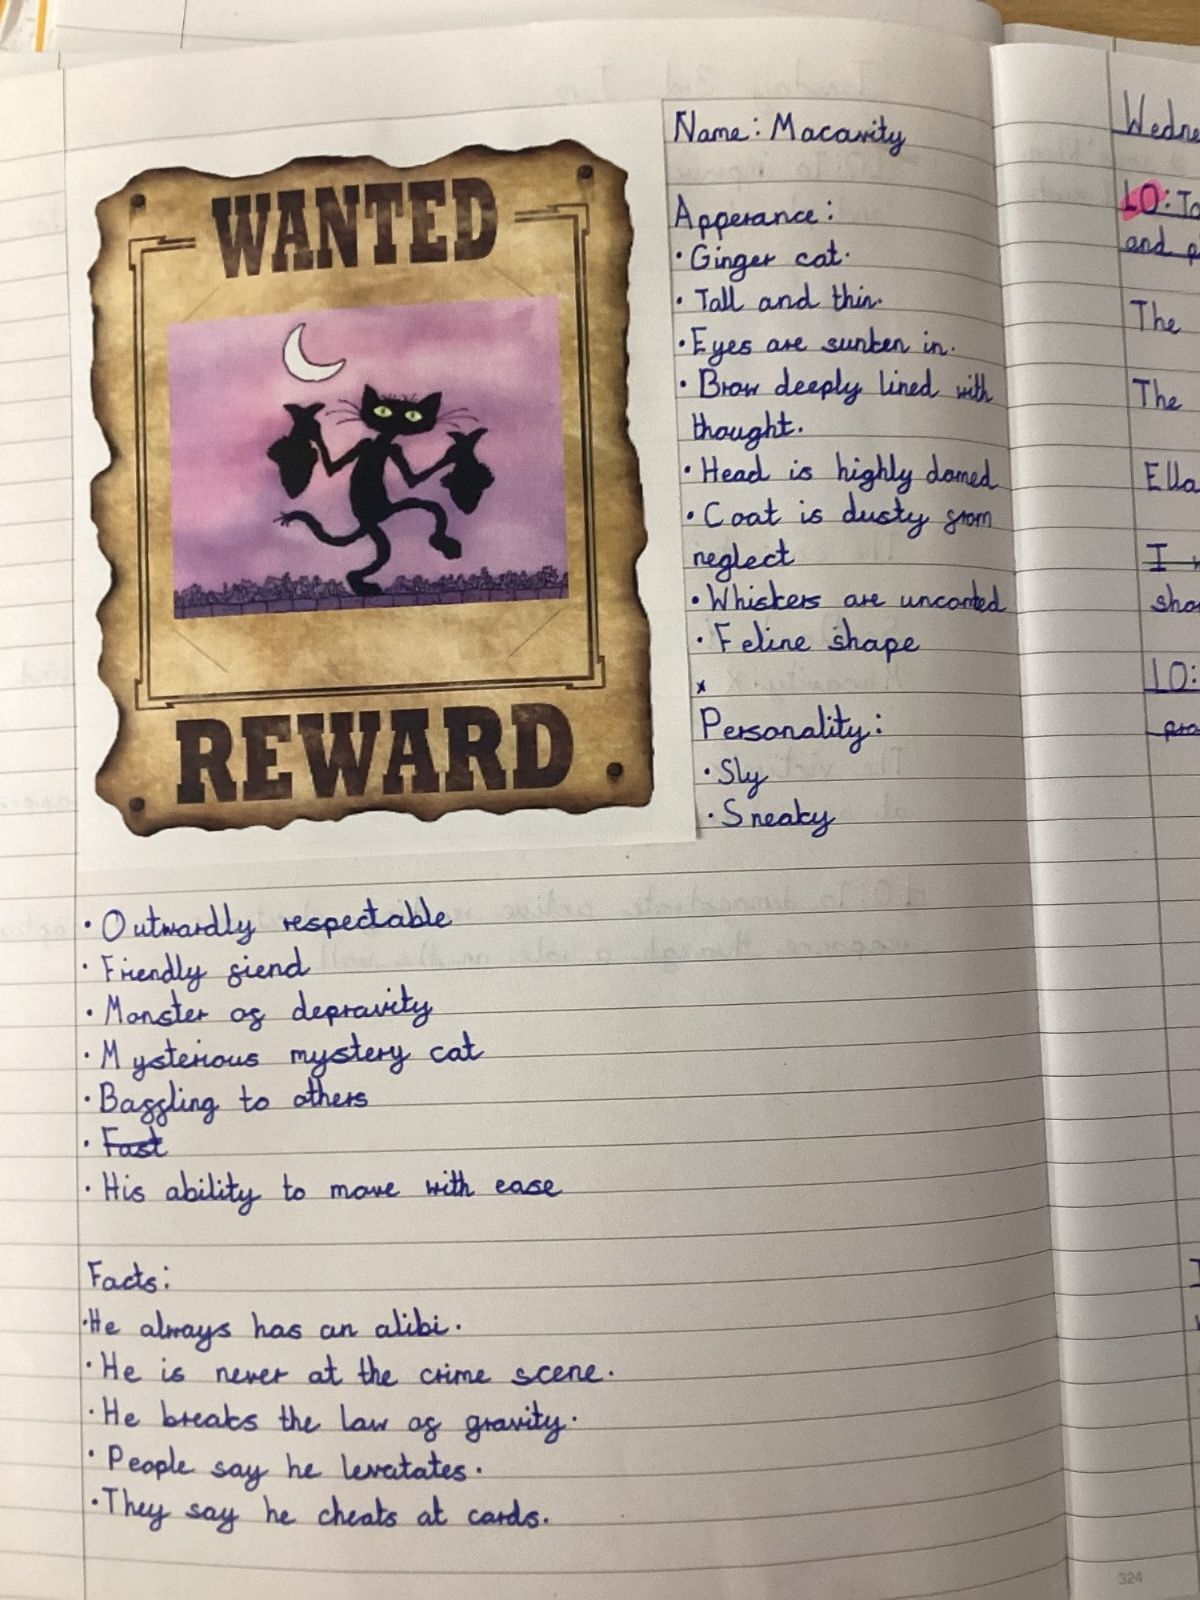 WANTED
REWARD
Name: Macavity
Apperance:
• Ginger cat.
• Tall and thin.
• Eyes are sunken in.
• Brow deeply lined with
thought.
• Head is highly domed
• Coat is dusty from
neglect
• Whiskers are uncombed
• Feline shape
x
Personality:
• Sly
• Sneaky
• Outwardly respectable
• Friendly fiend
• Monster of depravity
• Mysterious mystery cat
• Baffling to others
• Fast
• His ability to move with ease
Facts:
• He always has an alibi.
• He is never at the crime scene.
• He breaks the law of gravity.
• People say he levatates.
• They say he cheats at cards.
LO: To
and
The
The
Ella
I
LO:
324